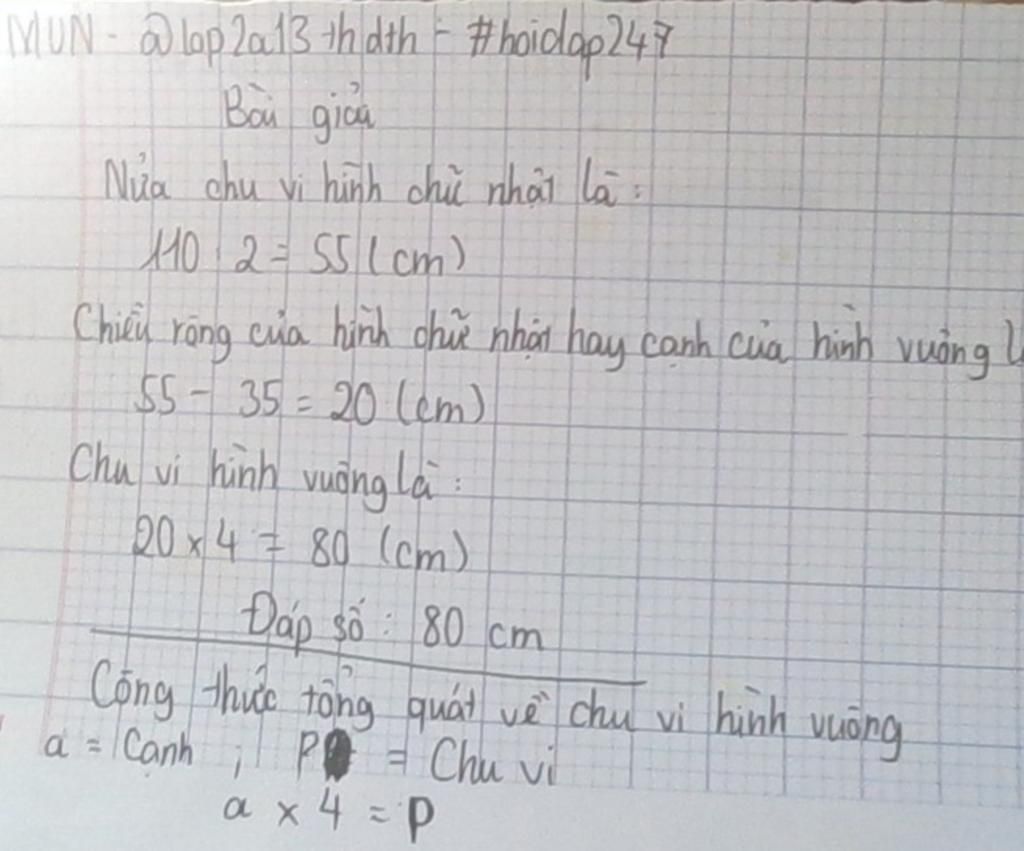 MUN - @lop2a13thdth - #hoidap247
Bài giải
Nửa chu vi hình chữ nhật là:
110 : 2 = 55 (cm)
Chiều rộng của hình chữ nhật hay cạnh của hình vuông l
55 - 35 = 20 (cm)
Chu vi hình vuông là:
20 x 4 = 80 (cm)
Đáp số: 80 cm
Công thức tổng quát về chu vi hình vuông
a = Cạnh ; P = Chu vi
a x 4 = P